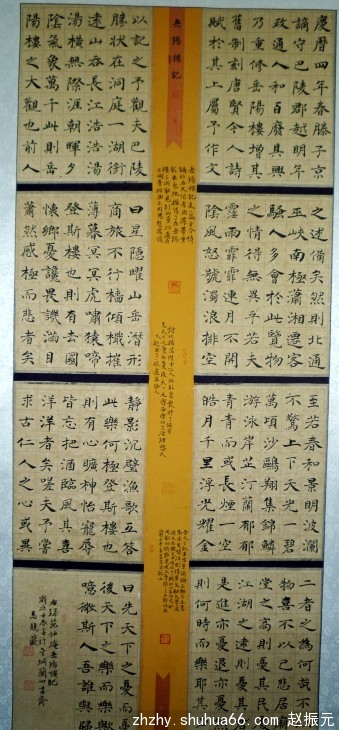 岳陽樓記
慶曆四年春滕子京
謫守巴陵郡越明年
政通人和百廢具興
乃重修岳陽樓增其
舊制刻唐賢今人詩
賦於其上屬予作文
以記之予觀夫巴陵
勝狀在洞庭一湖銜
遠山吞長江浩浩湯
湯橫無際涯朝暉夕
陰氣象萬千此則岳
陽樓之大觀也前人
之述備矣然則北通
巫峽南極瀟湘遷客
騷人多會於此覽物
之情得無異乎若夫
霪雨霏霏連月不開
陰風怒號濁浪排空
日星隱曜山岳潛形
商旅不行檣傾楫摧
薄暮冥冥虎嘯猿啼
登斯樓也則有去國
懷鄉憂讒畏譏滿目
蕭然感極而悲者矣
至若春和景明波瀾
不驚上下天光一碧
萬頃沙鷗翔集錦鱗
游泳岸芷汀蘭郁郁
青青而或長煙一空
皓月千里浮光耀金
靜影沉璧漁歌互答
此樂何極登斯樓也
則有心曠神怡寵辱
皆忘把酒臨風其喜
洋洋者矣嗟夫予嘗
求古仁人之心或異
二者之為何哉不
物喜不以己悲居
堂之高則憂其民
江湖之遠則憂其
是進亦憂退亦憂
則何時而樂耶其
曰先天下之憂而
後天下之樂而樂
噫微斯人吾誰與
zhzhy.shuhua66.com 赵振元